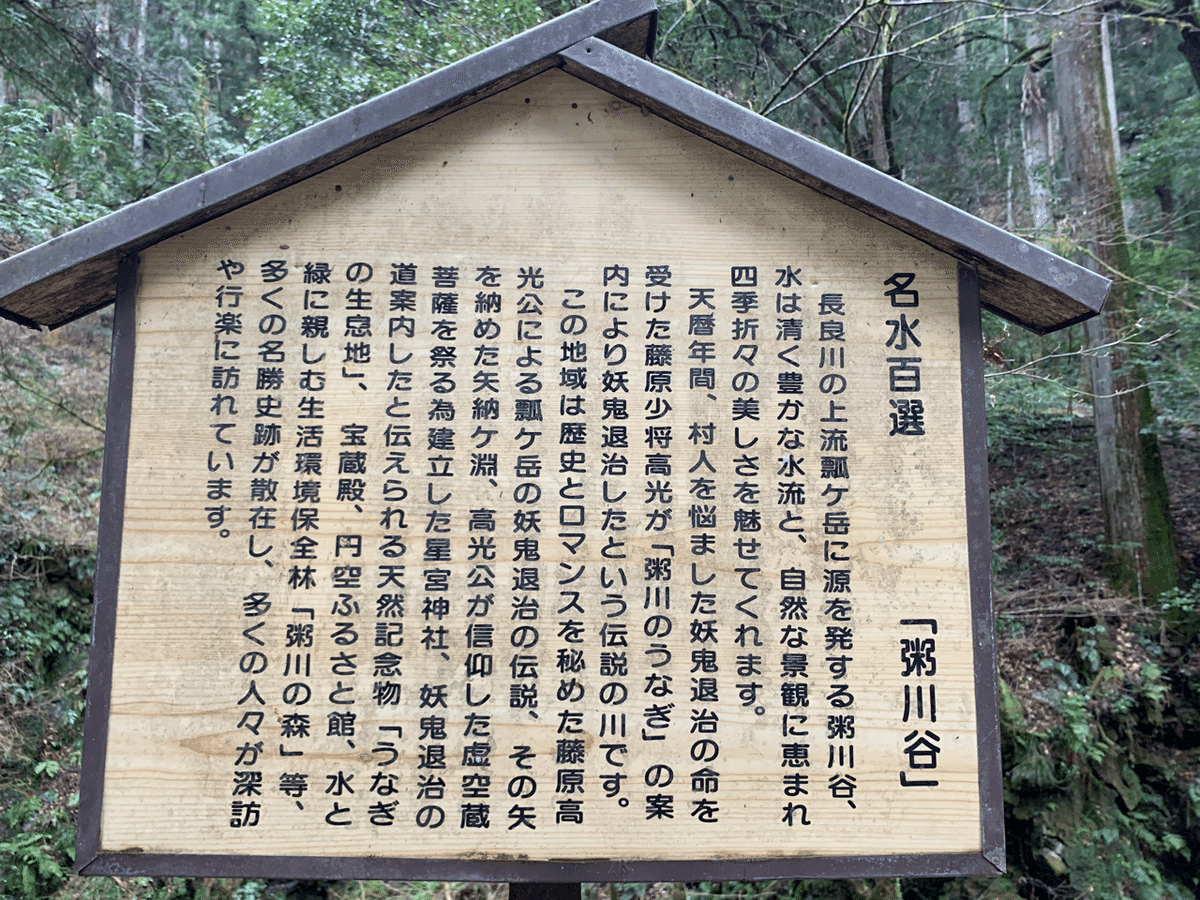 名水百選 「粥川谷」
長良川の上流瓢ケ岳に源を発する粥川谷、
水は清く豊かな水流と、自然な景観に恵まれ
四季折々の美しさを魅せてくれます。
天暦年間、村人を悩ました妖鬼退治の命を
受けた藤原少将高光が「粥川のうなぎ」の案
内により妖鬼退治したという伝説の川です。
この地域は歴史とロマンスを秘めた藤原高
光公による瓢ケ岳の妖鬼退治の伝説、その矢
を納めた矢納ケ淵、高光公が信仰した虚空蔵
菩薩を祭る為建立した星宮神社、妖鬼退治の
道案内したと伝えられる天然記念物「うなぎ
の生息地」、宝蔵殿、円空ふるさと館、水と
緑に親しむ生活環境保全林「粥川の森」等、
多くの名勝史跡が散在し、多くの人々が深訪
や行楽に訪れています。